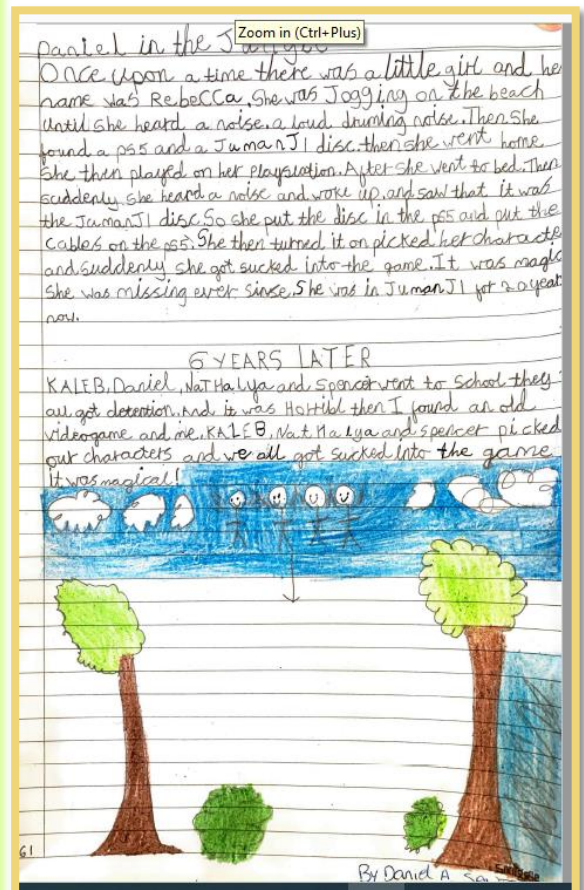 Zoom in (Ctrl+Plus)
Daniel in the J
Once upon a time there was a little girl and he
name was RebeCCa. She was Jogging on the beach
until she heard a noise. a loud druming noise. Then She
found a ps5 and a JumanJI disc. then she went home
She then played on her playstation. After she went to bed. Then
suddenly she heard a noise and woke up. and saw that it was
the JumanJI disc. So she put the disc in the ps5 and put the
Cables on the ps5. She then turned it on picked her characte
and suddenly she got sucked into the game. It was magic
She was missing ever sinse. She was in JumanJI for 20 year
now.
6 YEARS LATER
KALEB, Daniel, NatHalya and Spencer went to School they
all got detention. And it was Horribl then I found an old
videogame and me, KALEB, NatHalya and spencer picked
our characters and we all got sucked into the game
it was magical!
61
By Daniel A